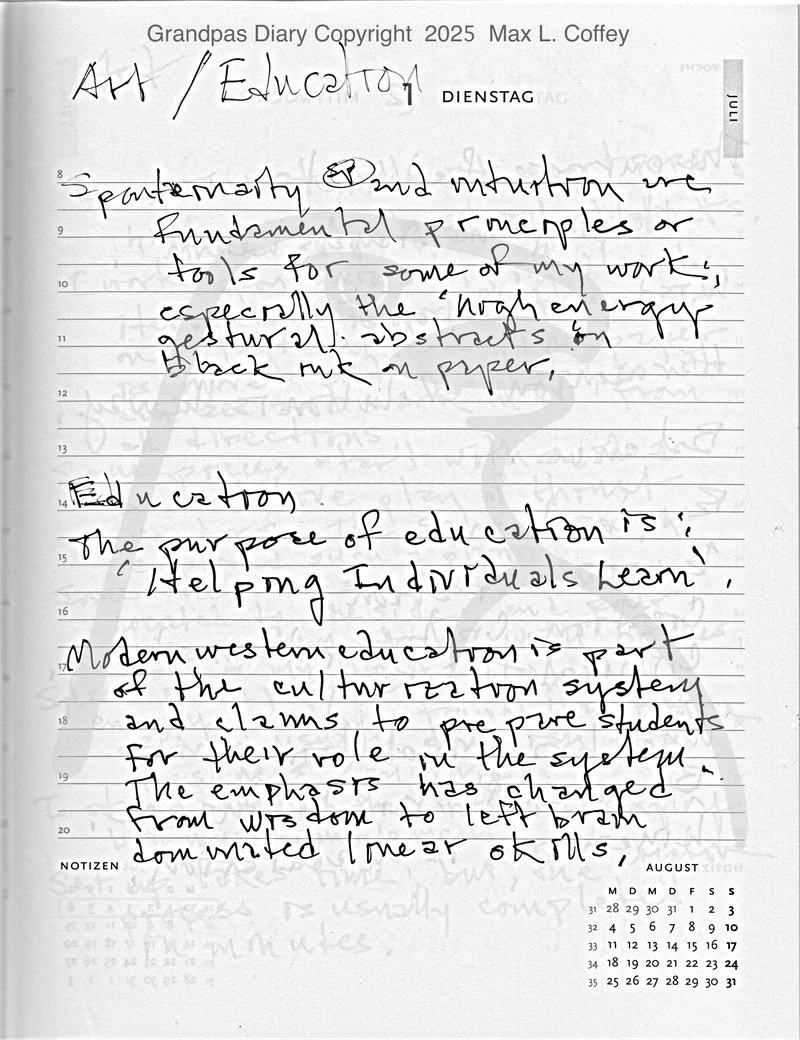 Grandpas Diary Copyright 2025 Max L. Coffey
Art / Education
1 DIENSTAG
JULI
8 Sponternaity (SP) and intuition are
9 fundamental principles or
10 tools for some of my work;
especially the 'high energy
11 gestural' abstracts in
black ink on paper.
12
13
14 Education
The purpose of education is;
15 'Helping Individuals Learn'.
16
17 Modern western education is part
of the culturization system
18 and claims to prepare students
for their role in the system.
19 The emphasis has changed
from wisdom to left brain
20 dominated linear skills,
NOTIZEN
AUGUST
M D M D F S S
31 28 29 30 31 1 2 3
32 4 5 6 7 8 9 10
33 11 12 13 14 15 16 17
34 18 19 20 21 22 23 24
35 25 26 27 28 29 30 31